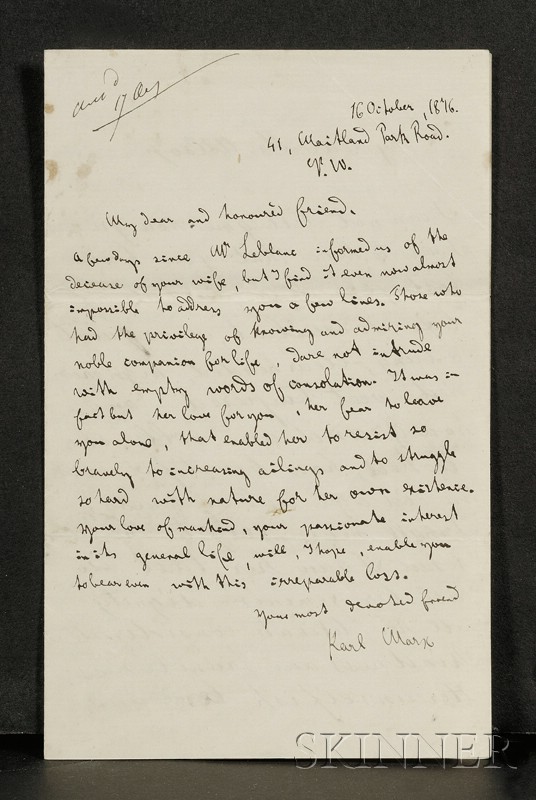 17 Oct
16 October, 1876.
41, Maitland Park Road.
N. W.
My dear and honoured friend.
A few days since Mr Leblanc informed us of the
decease of your wife, but I find it even now almost
impossible to address you a few lines. Those who
had the privilege of knowing and admiring your
noble companion for life, dare not intrude
with empty words of consolation. It was in
fact but her love for you, her fear to leave
you alone, that enabled her to resist so
bravely to increasing ailings and to struggle
so hard with nature for her own existence.
Your love of mankind, your passionate interest
in its general life, will, I hope, enable you
to bear even with this irreparable loss.
Your most devoted friend
Karl Marx
SKINNER